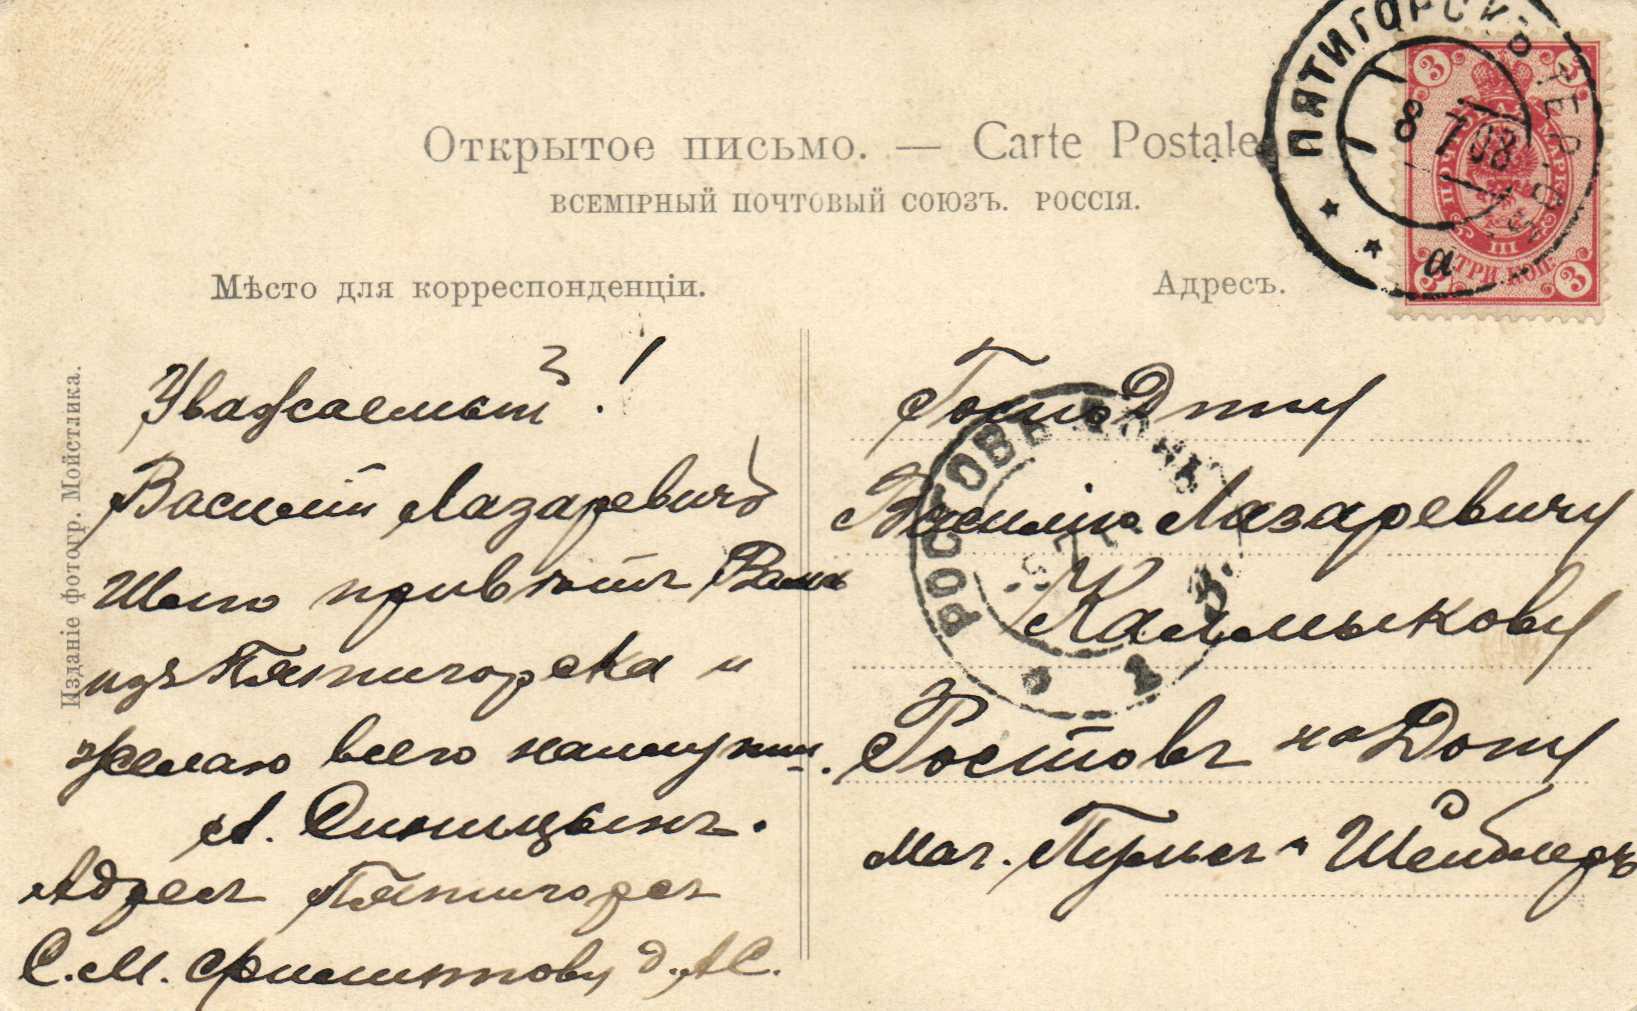 Открытое письмо. — Carte Postale
ВСЕМІРНЫЙ ПОЧТОВЫЙ СОЮЗЪ. РОССІЯ.
Мѣсто для корреспонденціи.
Адресъ.
Изданіе фотогр. Мойстлика.
Уважаемый!
Василій Лазаревичъ
Шлю привѣтъ Вамъ
изъ Пятигорска и
желаю всего
А. Синицынъ.
Адресъ Пятигорскъ
С. М.
Господину
Василію Лазаревичу
Калмыкову
Ростовъ на Дону
Маг. и
ПЯТИГОРСКЪ ТЕР. ОБ.
8 7 08
а
3
3
3
3
ТРИ КОП.
III
РОСТОВЪ ДОНЪ
1